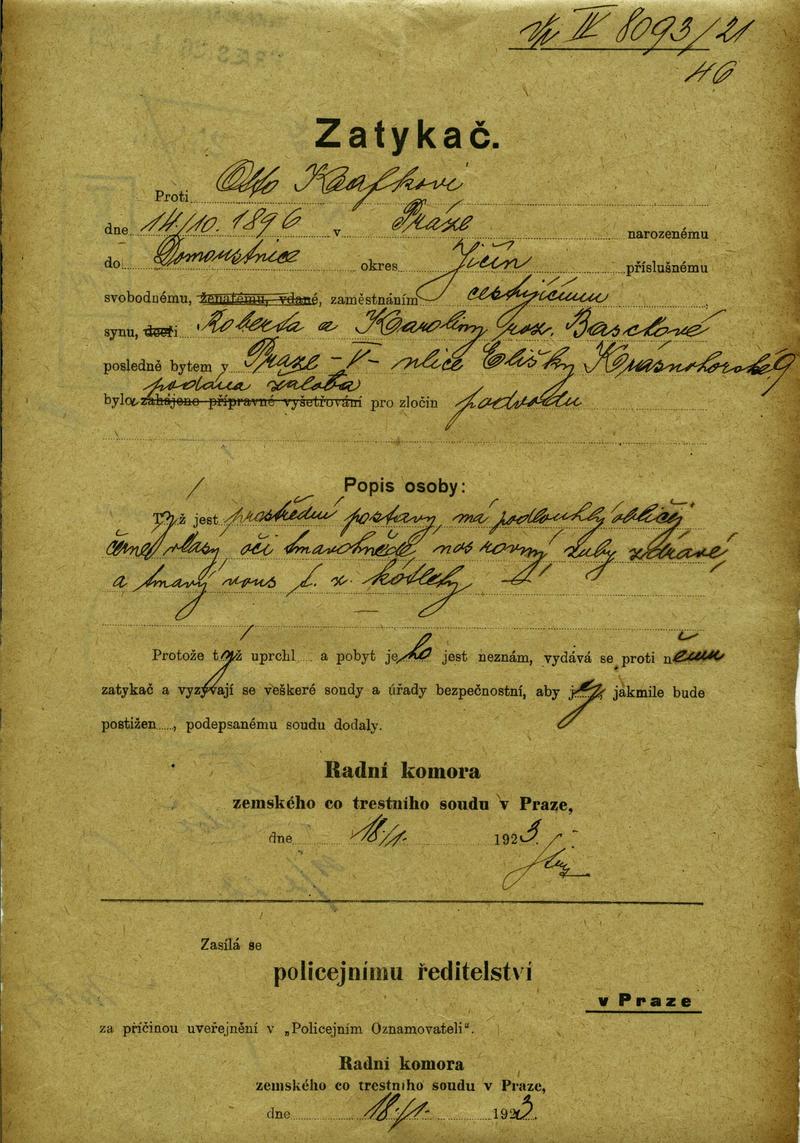 Vr IV 8093/21
46
Zatykač.
Proti Otto Kafkovi
dne 14/10. 1896 v Praze narozenému
do Domousnice okres Jičín příslušnému
svobodnému, ženatému, vdané, zaměstnáním cestujícímu
synu, dceři Roberta a Karoliny roz. Baschové
posledně bytem v Praze -V- ulice Elišky Krásnohorské 9
podána žaloba
byla zahájeno přípravné vyšetřování pro zločin podvodu
Popis osoby:
Týž jest prostřední postavy, má podlouhlý obličej
černé vlasy, oči tmavohnědé, nos rovný, zuby zdravé,
a tmavý vous t. zv. kotlety
Protože týž uprchl a pobyt jeho jest neznám, vydává se proti němu
zatykač a vyzývají se veškeré soudy a úřady bezpečnostní, aby jej, jakmile bude
postižen, podepsanému soudu dodaly.
Radní komora
zemského co trestního soudu v Praze,
dne 18/1. 1923.
Zasílá se
policejnímu ředitelství
v Praze
za příčinou uveřejnění v „Policejním Oznamovateli“.
Radní komora
zemského co trestního soudu v Praze,
dne 18/1. 1923.